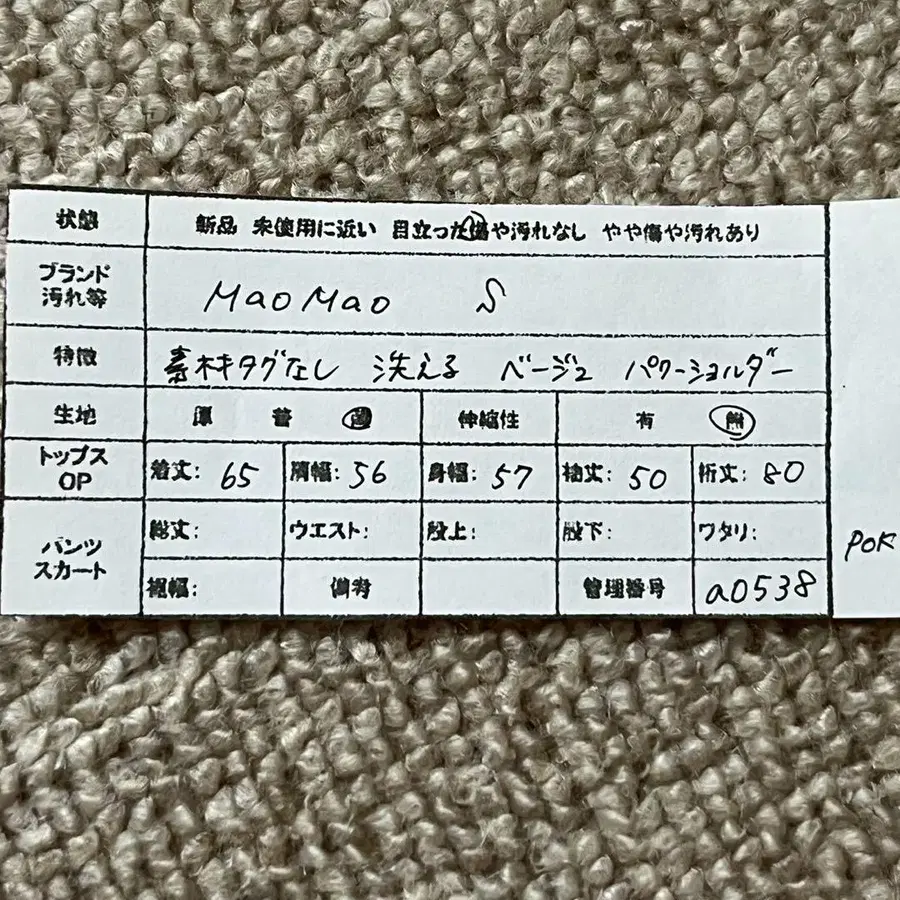 状態 新品 未使用に近い 目立った傷や汚れなし やや傷や汚れあり
ブランド
汚れ等
MaoMao S
特徴 素材タグなし 洗える ベージュ パワーショルダー
生地 厚 普 薄 伸縮性 有 無
トップス
OP
着丈: 65 肩幅: 56 身幅: 57 袖丈: 50 裄丈: 80
パンツ
スカート
総丈: ウエスト: 股上: 股下: ワタリ:
裾幅: 備考 管理番号 a0538
POK